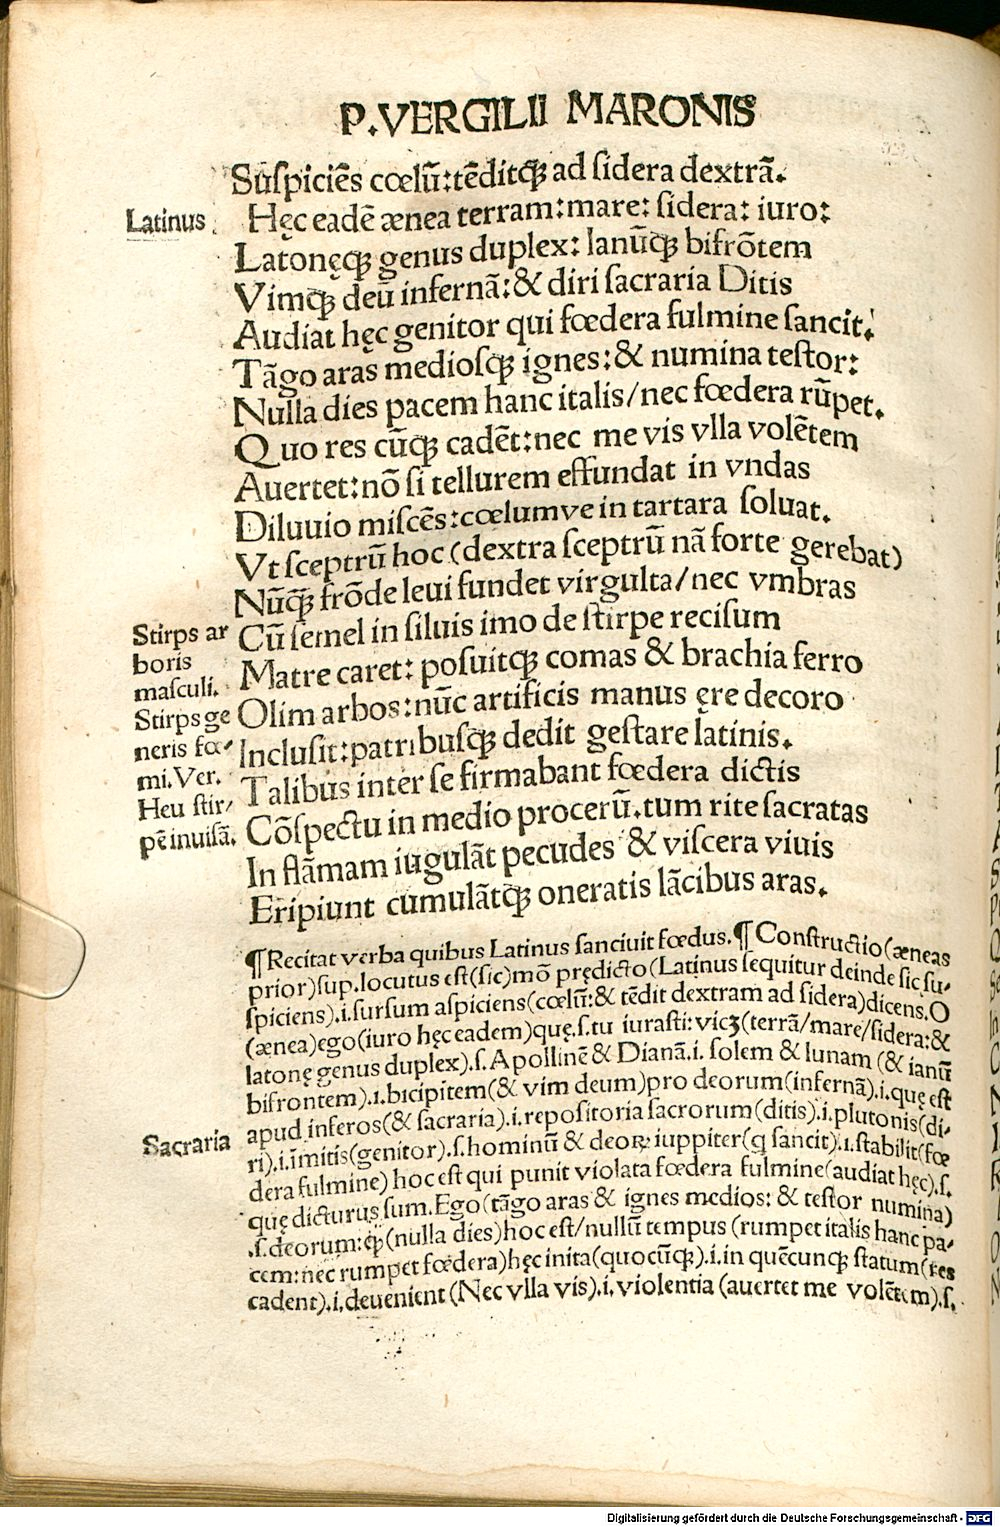 P.VERGILII MARONIS
Suſpiciēs cœlū:tēditq̃ꝫ ad ſidera dextrā.
Latinus
Hęc eadē ænea terram:mare: ſidera: iuro:
Latonęq̃ꝫ genus duplex: Ianūq̃ꝫ bifrōtem
Vimq̃ꝫ deū infernā:& diri ſacraria Ditis
Audiat hęc genitor qui fœdera fulmine ſancit.
Tāgo aras medioſq̃ꝫ ignes:& numina teſtor:
Nulla dies pacem hanc italis/nec fœdera rūpet.
Quo res cūq̃ꝫ cadēt:nec me vis vlla volētem
Auertet:nō ſi tellurem effundat in vndas
Diluuio miſcēs:cœlumve in tartara ſoluat.
Vt ſceptrū hoc (dextra ſceptrū nā forte gerebat)
Nūq̃ꝫ frōde leui fundet virgulta/nec vmbras
Cū ſemel in ſiluis imo de ſtirpe reciſum
Matre caret: poſuitq̃ꝫ comas & brachia ferro
Olim arbos:nūc artificis manus ęre decoro
Incluſit:patribuſq̃ꝫ dedit geſtare latinis.
Talibus inter ſe firmabant fœdera dictis
Cōſpectu in medio procerū.tum rite ſacratas
In flāmam iugulāt pecudes & viſcera viuis
Eripiunt cumulātq̃ꝫ oneratis lācibus aras.
Stirps ar
boris
maſculi.
Stirps ge
neris fœ-
mi.Ver.
Heu ſtir/
pē inuiſā.
¶Recitat verba quibus Latinus ſanciuit fœdus.¶Conſtructio(æneas
prior)ſup.locutus eſt(ſic)mō prędicto(Latinus ſequitur deinde ſic ſu-
ſpiciens).i.ſurſum aſpiciens(cœlū:& tēdit dextram ad ſidera)dicens.O
(ænea)ego(iuro hęc eadem)quę.ſ.tu iuraſti:vicꝫ(terrā/mare/ſidera:&
latonę genus duplex).ſ.Apollinē & Dianā.i. ſolem & lunam (& ianū
bifrontem).i.bicipitem(& vim deum)pro deorum(infernā).i.quę eſt
apud inferos(& ſacraria).i.repoſitoria ſacrorum(ditis).i.plutonis(di-
ri).i.īmitis(genitor).ſ.hominū & deoꝝ iuppiter(q ſancit).i.ſtabilit(fœ
dera fulmine) hoc eſt qui punit violata fœdera fulmine(audiat hęc).ſ.
quę dicturus ſum.Ego(tāgo aras & ignes medios: & teſtor numina)
.ſ.deorum:ꝙ(nulla dies)hoc eſt/nullū tempus (rumpet italis hanc pa-
cem:nec rumpet fœdera)hęc inita(quocūq̃ꝫ).i.in quēcunqꝫ ſtatum(res
cadent).i.deuenient(Nec vlla vis).i.violentia (auertet me volētem).ſ.
Sacraria
Digitalisierung gefördert durch die Deutsche Forschungsgemeinschaft - DFG